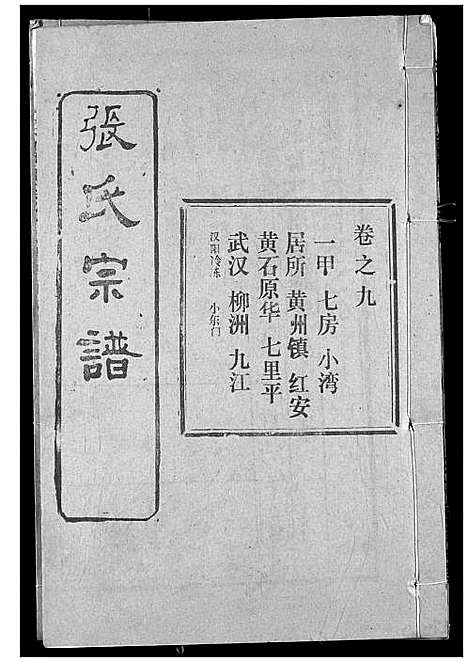 卷之九
一甲 七房 小湾
居所 黄州镇 红安
黄石原华 七里平
武汉 柳洲 九江
汉阳冷冻 小东门
張氏宗譜